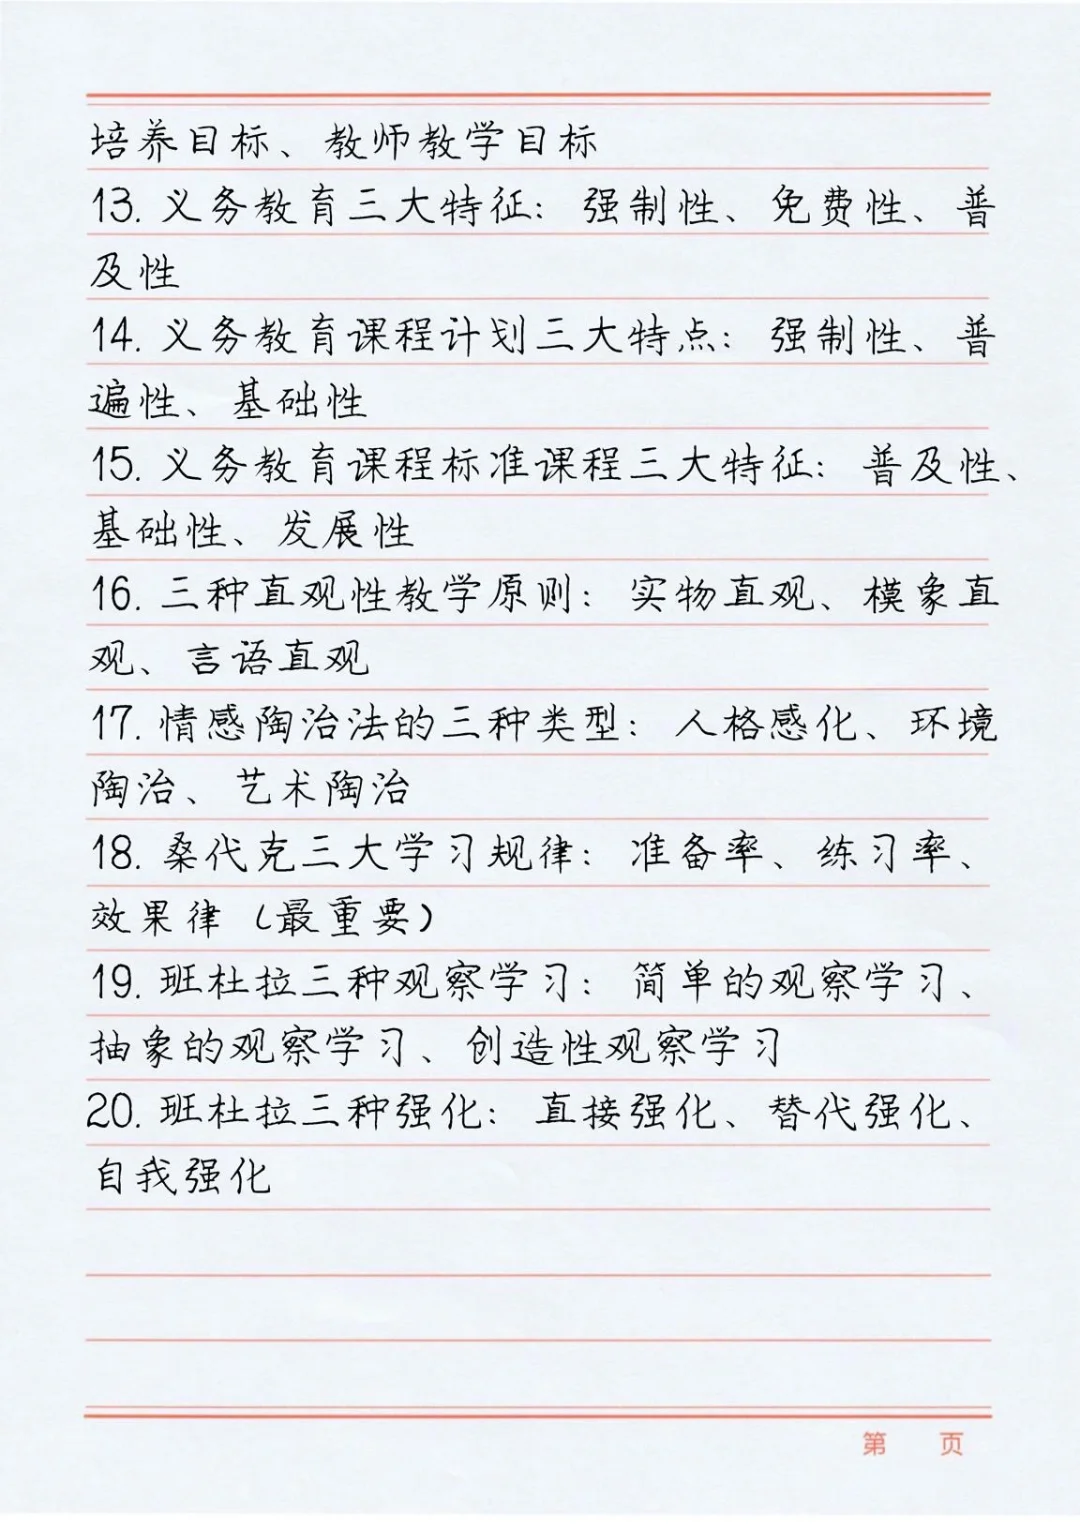 培养目标、教师教学目标
13. 义务教育三大特征：强制性、免费性、普
及性
14. 义务教育课程计划三大特点：强制性、普
遍性、基础性
15. 义务教育课程标准课程三大特征：普及性、
基础性、发展性
16. 三种直观性教学原则：实物直观、模象直
观、言语直观
17. 情感陶冶法的三种类型：人格感化、环境
陶冶、艺术陶冶
18. 桑代克三大学习规律：准备率、练习率、
效果律（最重要）
19. 班杜拉三种观察学习：简单的观察学习、
抽象的观察学习、创造性观察学习
20. 班杜拉三种强化：直接强化、替代强化、
自我强化
第 页